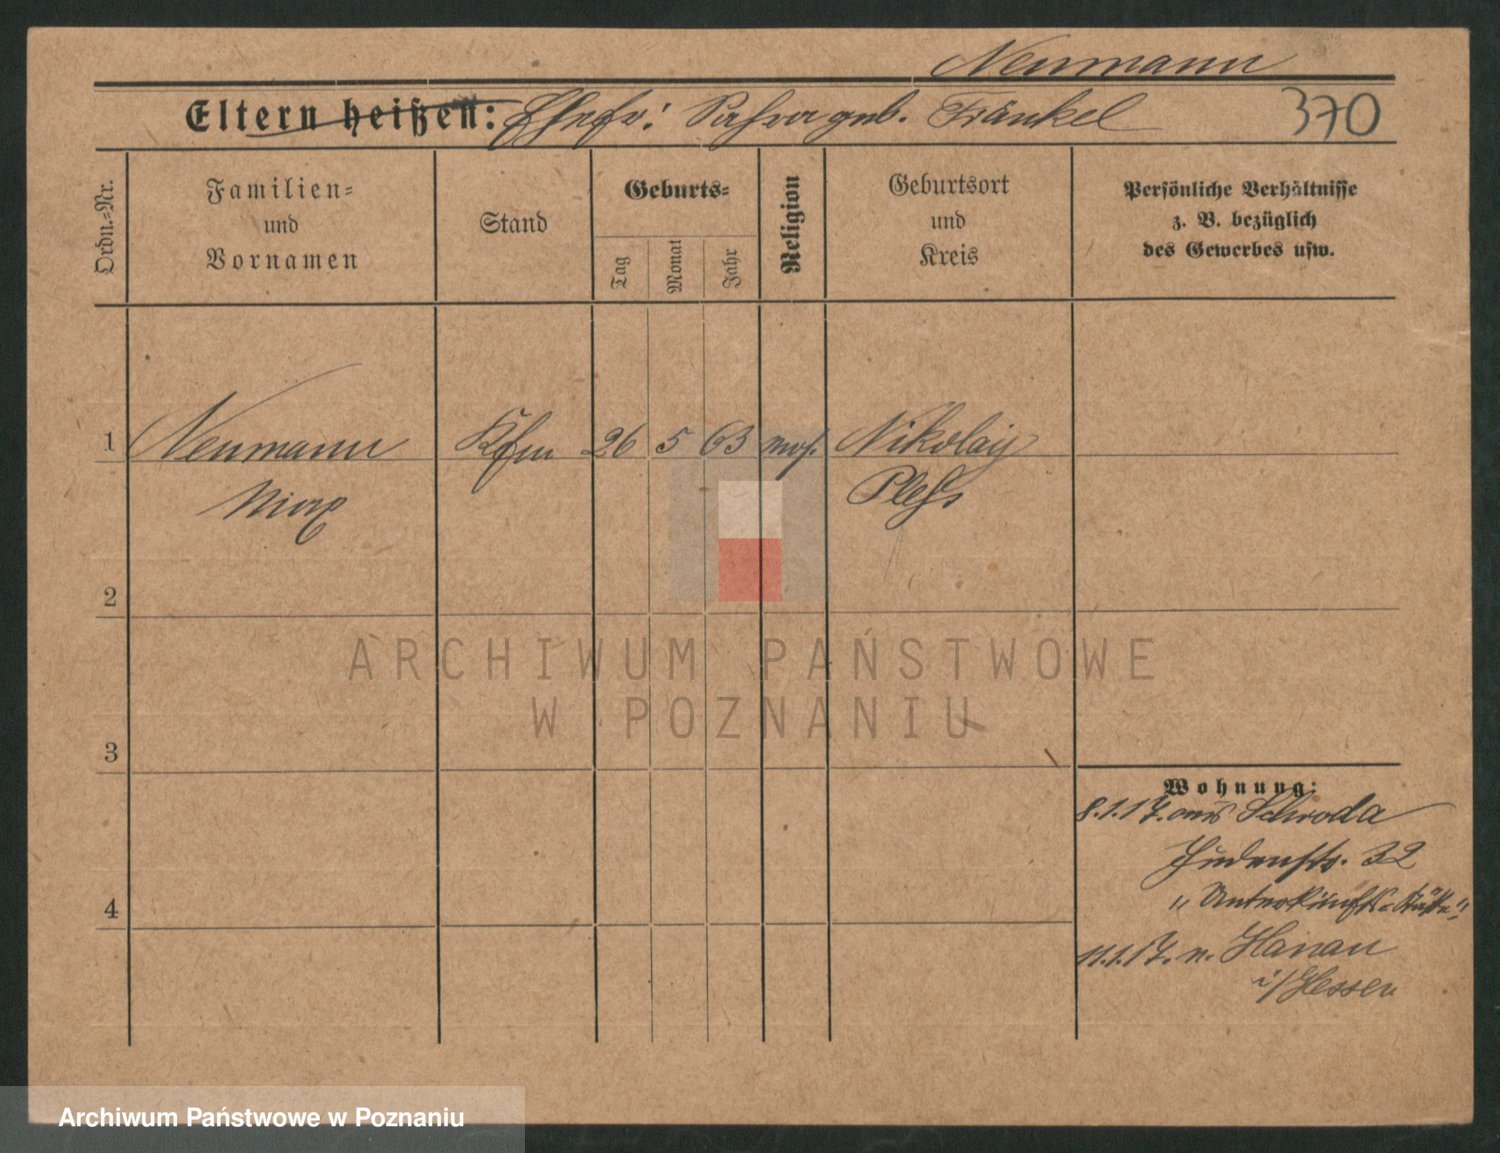 Neumann
Eltern heißen: Ehefr: Sahra geb. Fränkel 370
Ordn.-Nr.
Familien-
und
Vornamen
Stand
Geburts-
Tag
Monat
Jahr
Religion
Geburtsort
und
Kreis
Persönliche Verhältnisse
z. B. bezüglich
des Gewerbes usw.
1 Neumann Kfm 26 5 63 mos. Nikolay
Max Pleß
2
ARCHIWUM PAŃSTWOWE
W POZNANIU
3
Wohnung:
8.1.17. aus Schroda
Judenstr. 32
4
„Unterkunfts-Stätte“
11.1.17. n. Hanau
i/Hessen
Archiwum Państwowe w Poznaniu